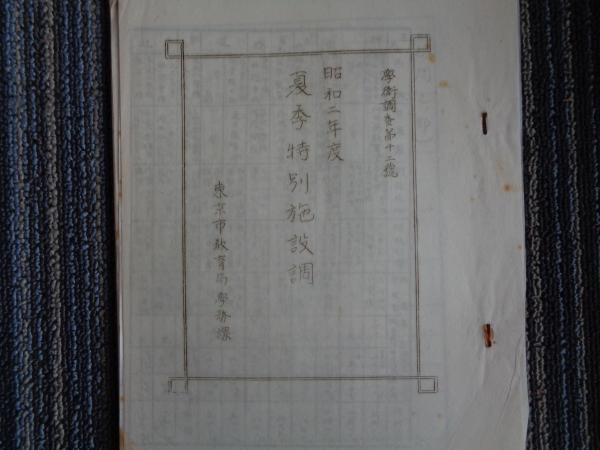 學術調査第十二號
昭和二年度
夏季特別施設調
東京市教育局學務課